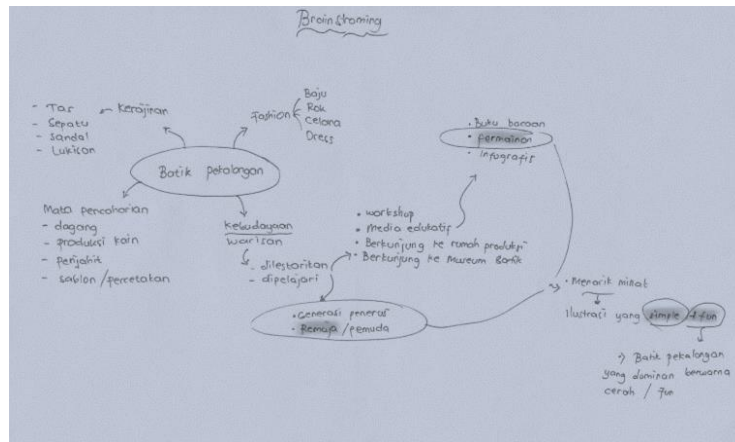 Brainstoming
- Tas
- Sepatu
- Sandal
- Lukisan
Kerajinan
Fashion
Baju
Rok
Celana
Dress
Batik pekalongan
Mata pencaharian
- dagang
- produksi kain
- penjahit
- sablon / percetakan
Kebudayaan
warisan
- dilestarikan
- dipelajari
• Generasi penerus
• Remaja / pemuda
• workshop
• Media edukatif
• Berkunjung ke rumah produksi
• Berkunjung ke Museum Batik
• Buku bacaan
• permainan
• infografis
• Menarik minat
ilustrasi yang simple + fun
Batik pekalongan
yang dominan berwarna
cerah / fun